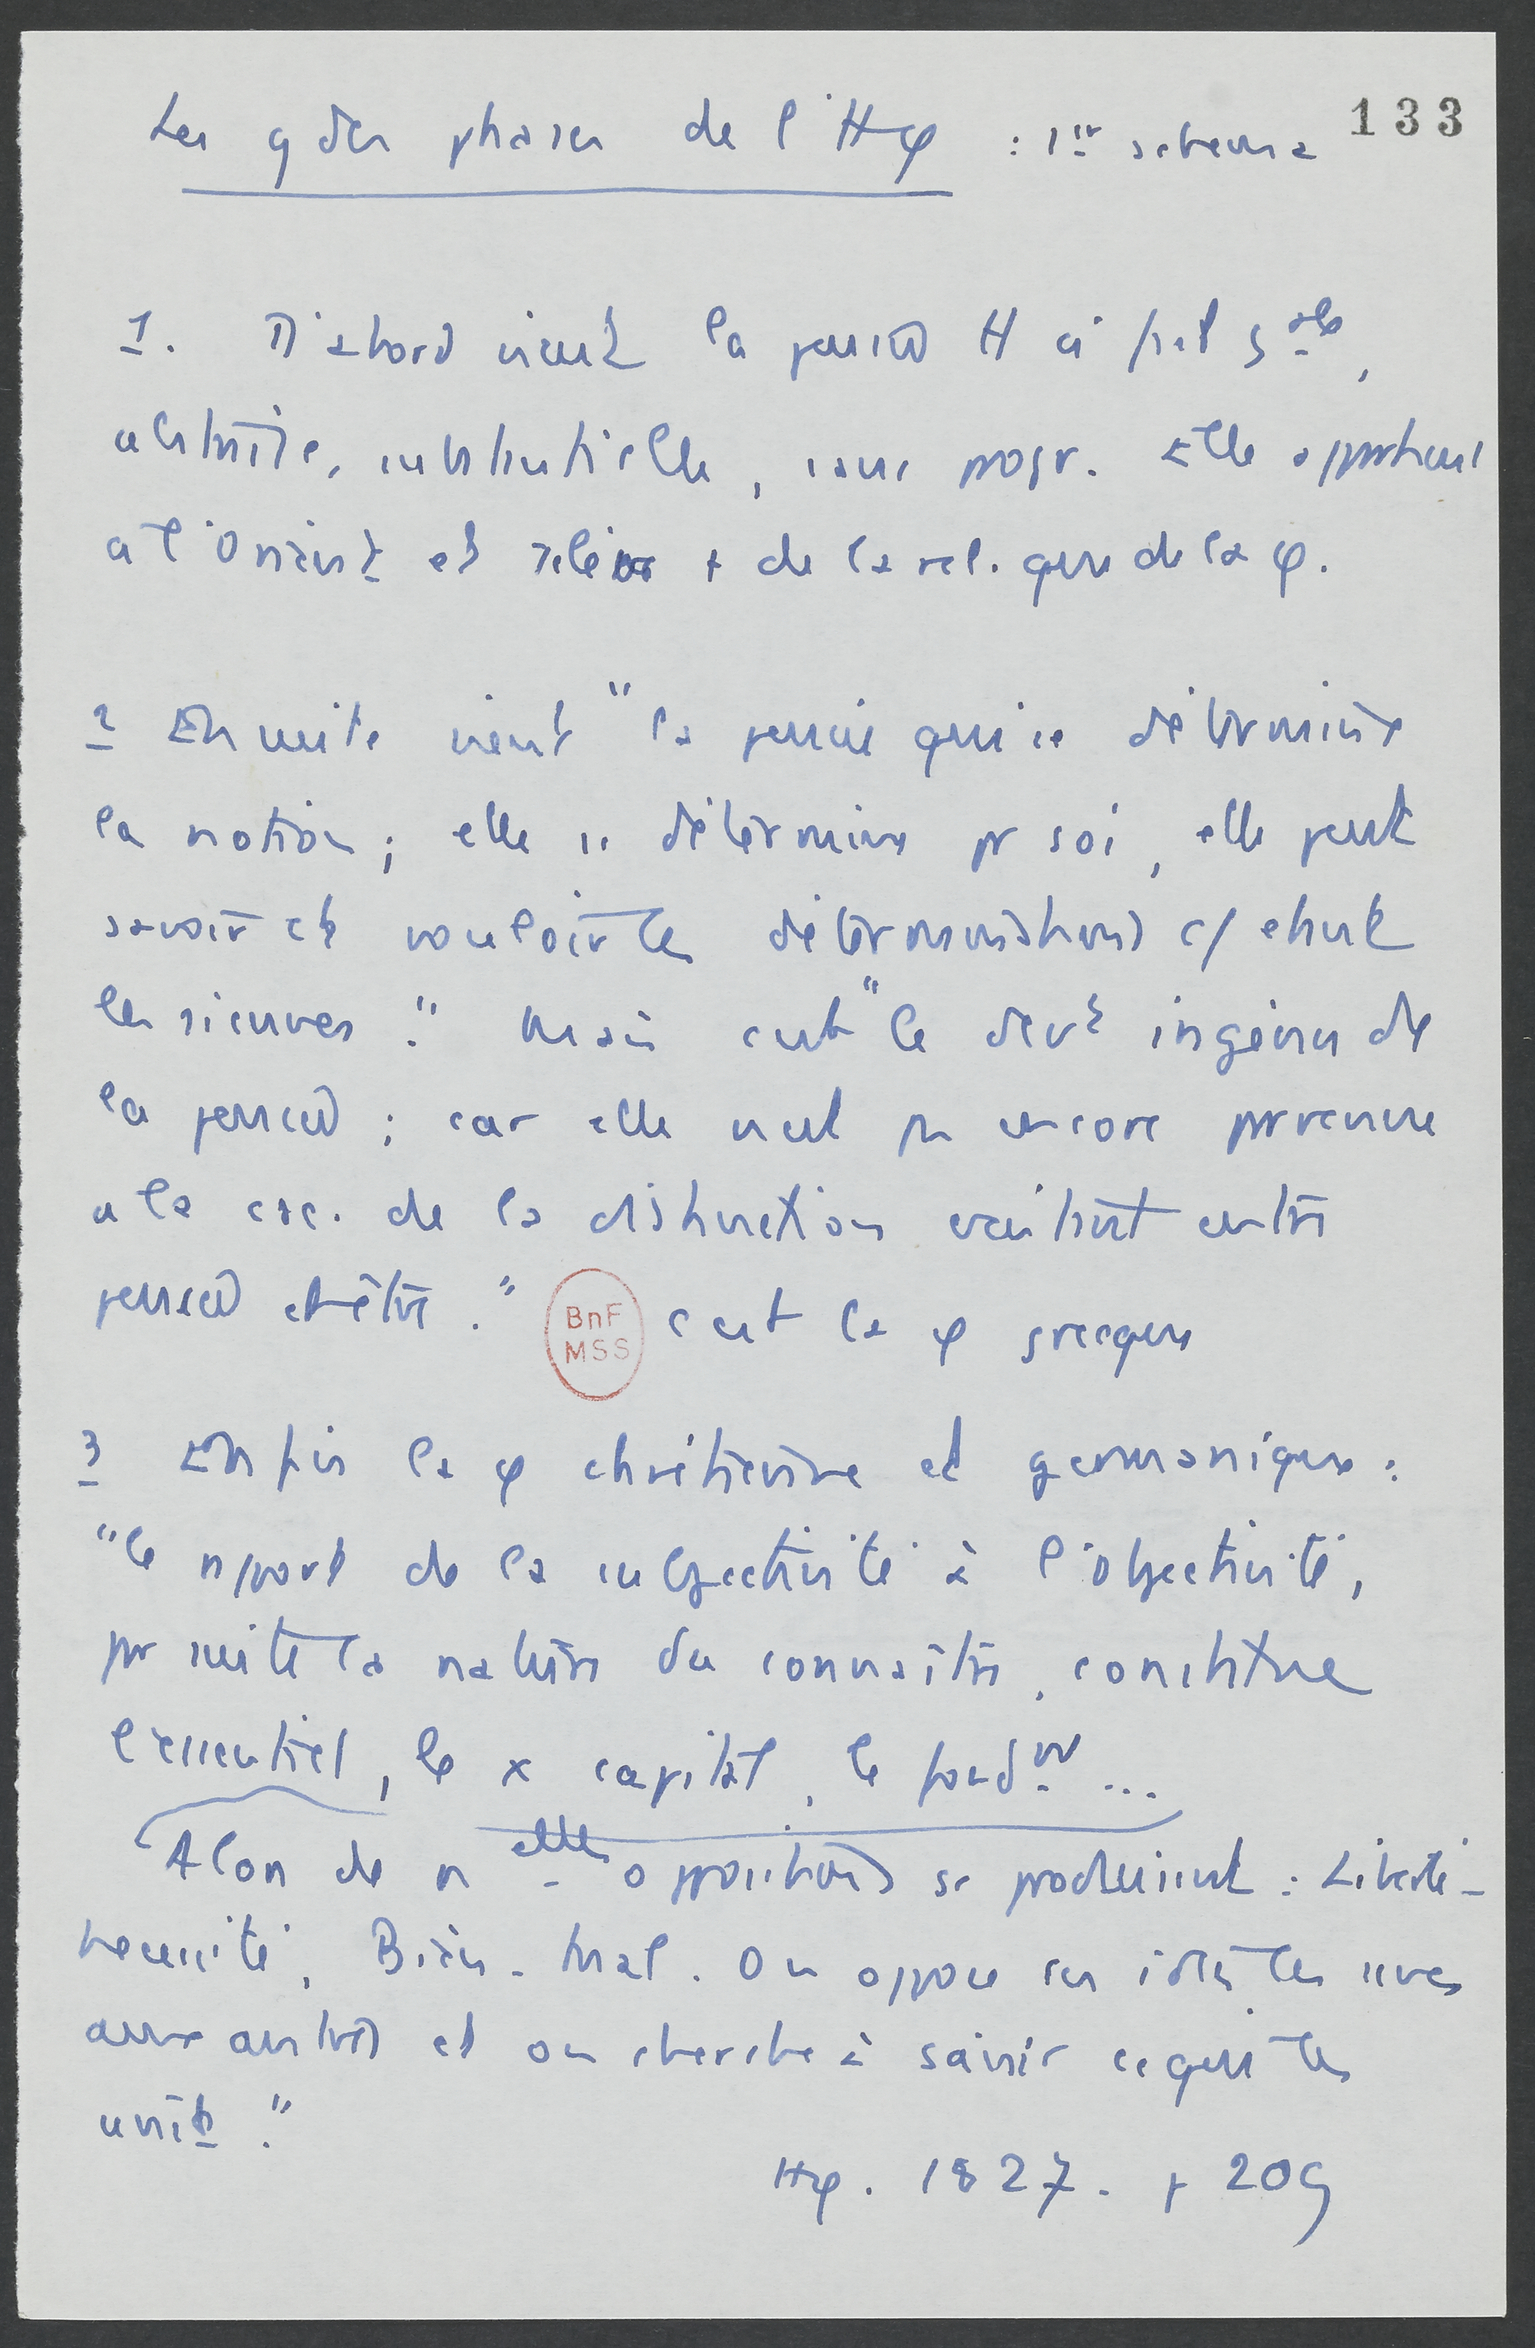 Les gdes phases de l'Hφ : 1er schema 133
1. D'abord vient la pensée H
abstraite, substantielle, sans progr. Elle appartient
a l'Orient et relève + de la rel. que de la φ.
2 Ensuite vient "la pensée qui se détermine
la notion ; elle se détermine pr soi, elle peut
savoir et vouloir les déterminations c/ étant
les siennes." Mais c'est "le devt ingénu de
la pensée ; car elle n'est pas encore parvenue
a la csc. de la distinction existant entre
pensée et être." BnF MSS C'est la φ grecque
3 Enfin la φ chrétienne et germanique :
"le rapport de la subjectivité à l'objectivité,
par suite la nature du connaître, constitue
l'essentiel, le x capital, le fond ...
Alors de nelles oppositions se produisent : Liberté -
necessité, Bien - Mal. On oppose ces idées les unes
aux autres et on cherche à saisir ce qui les
unit."
Hφ. 1827. p 209